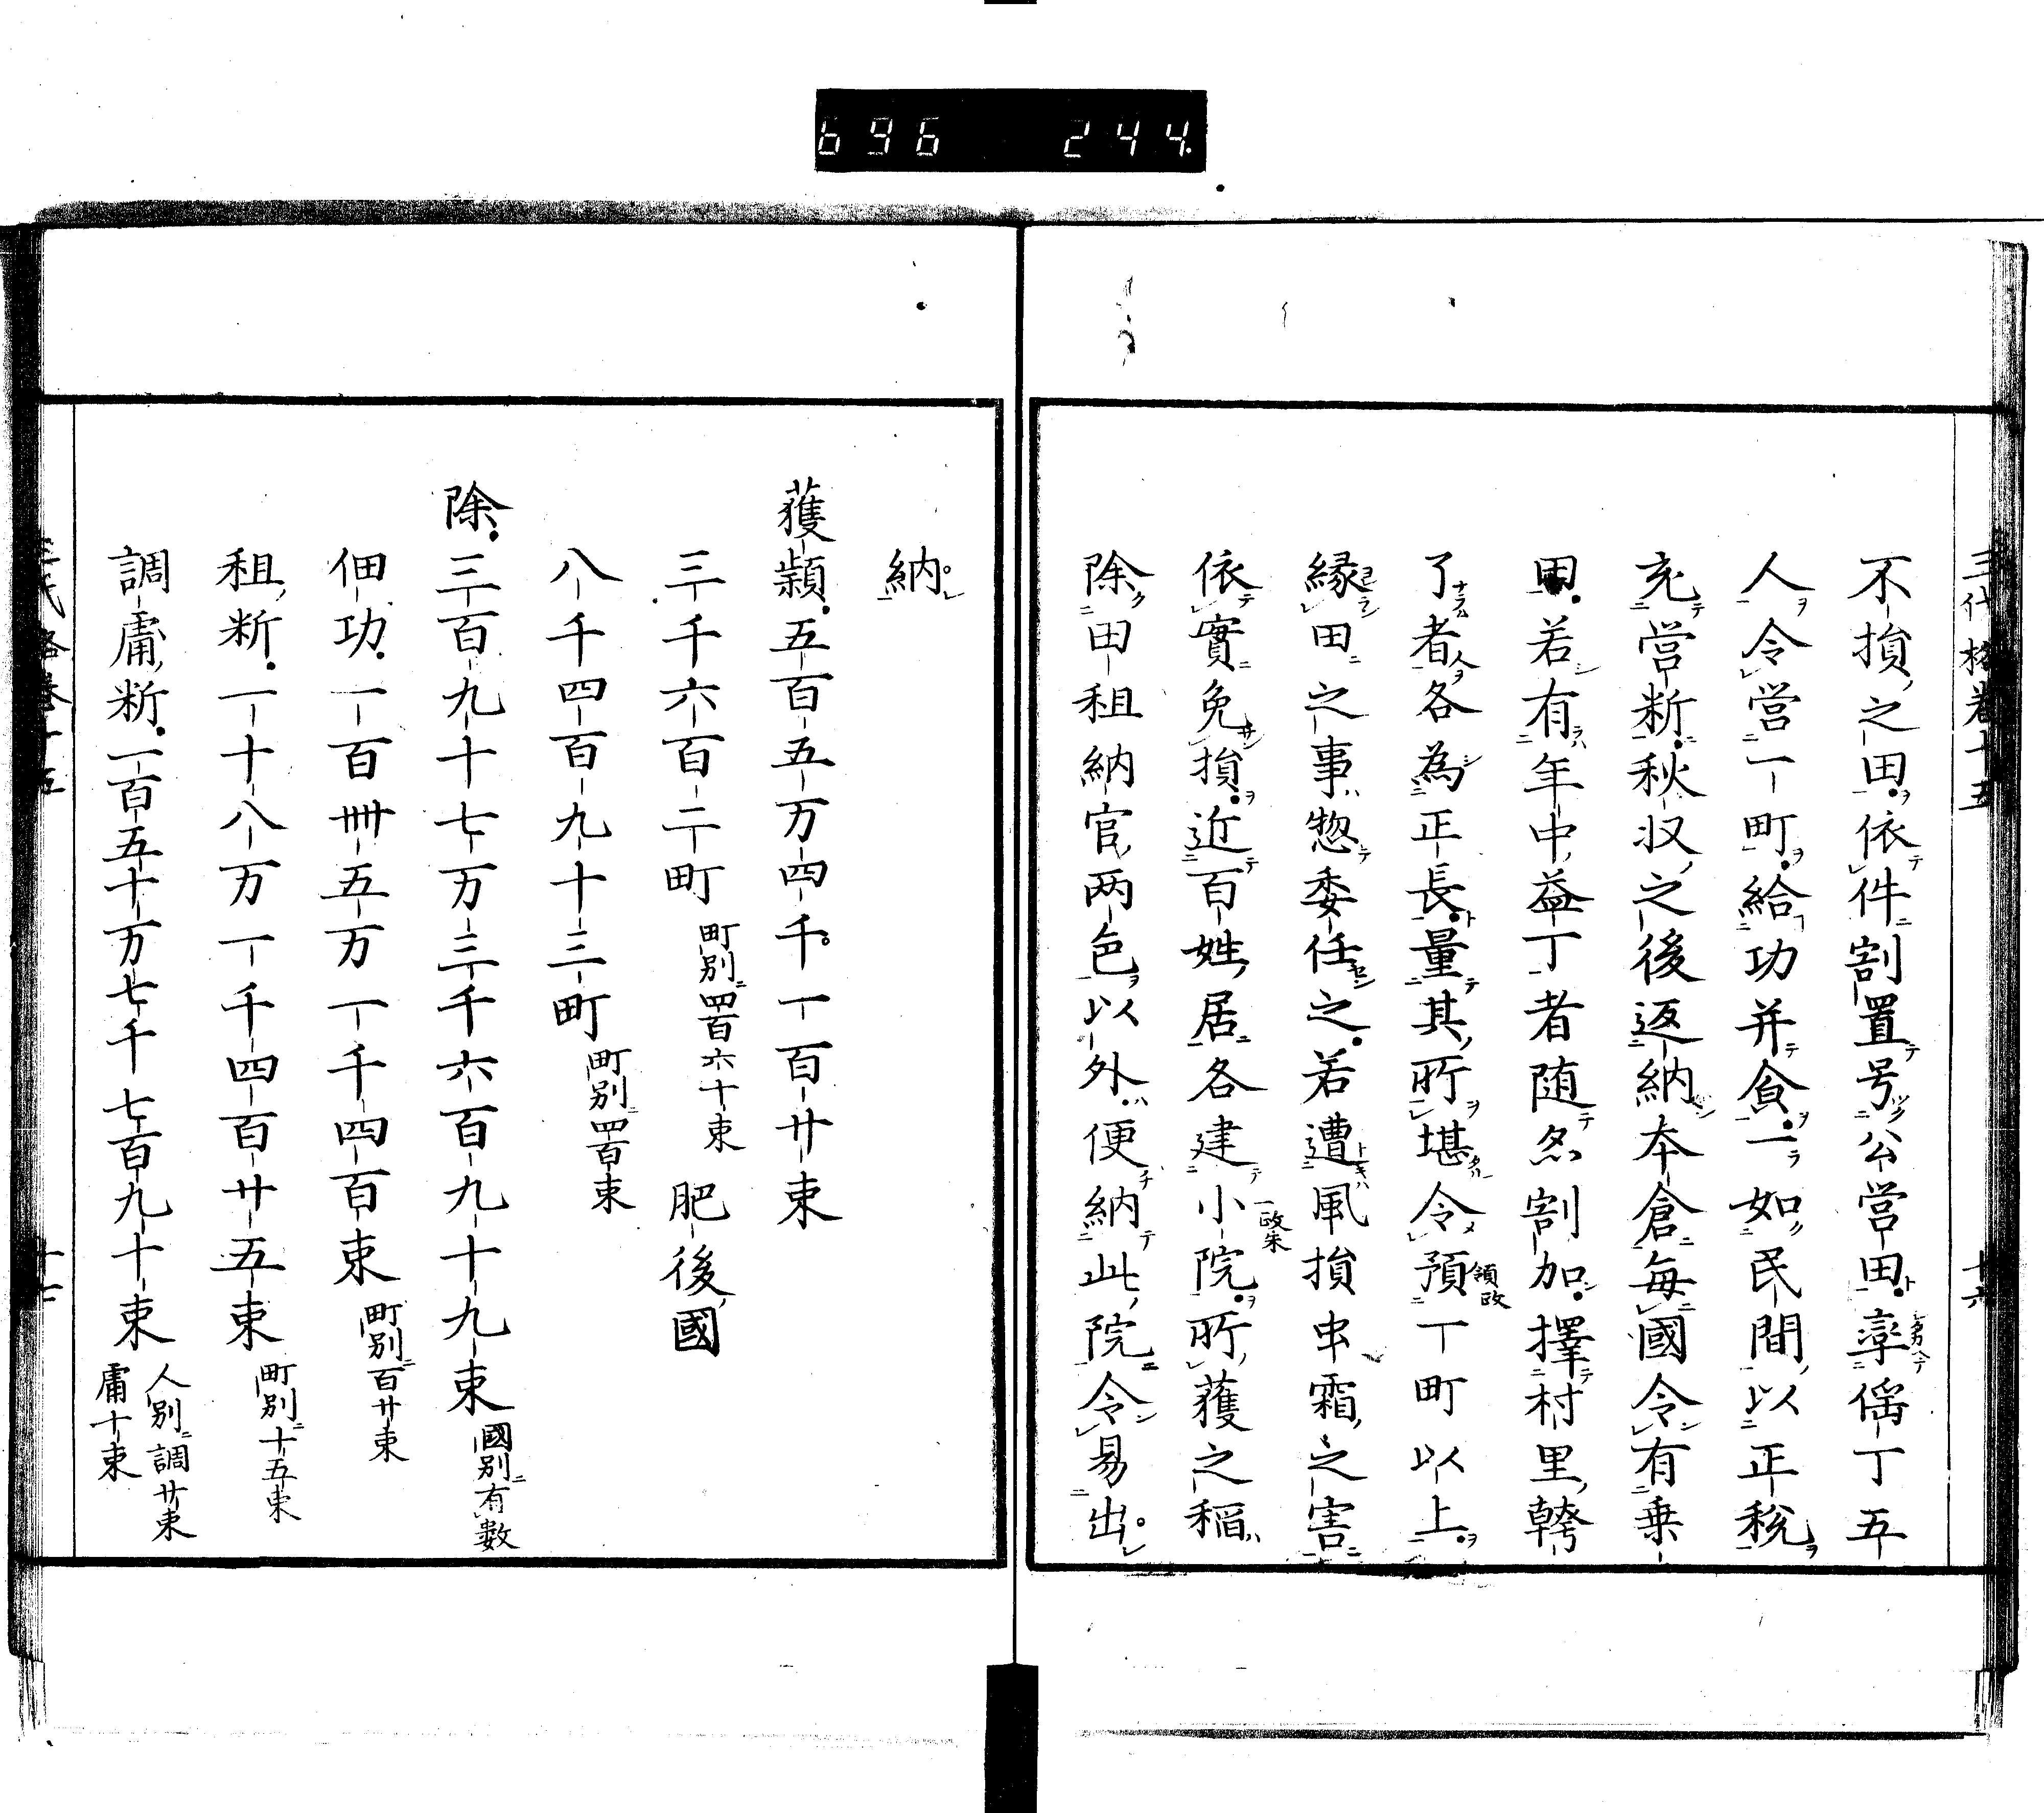 696 244
三代格卷十五 十六
不損之田依件割置号公営田率徭丁五
人令営一町給功并食一如民間以正税
充営䉼秋収之後返納本倉毎國令有乗
田若有年中益丁者随名割加擇村里幹
了者各為正長量其所堪令預一町以上
縁田之事惣委任之若遭風損虫霜之害
依實免損近百姓居各建小院所獲之稲
除田租納官両色以外便納此院令易出
納
獲穎五百五万四千一百廿束
三千六百二町 町別四百六十束 肥後國
八千四百九十三町 町別四百束
除三百九十七万三千六百九十九束 國別有數
佃功一百卌五万一千四百束 町別百廿束
租䉼一十八万一千四百廿五束 町別十五束
調庸䉼一百五十万七千七百九十束 人別調廿束 庸十束